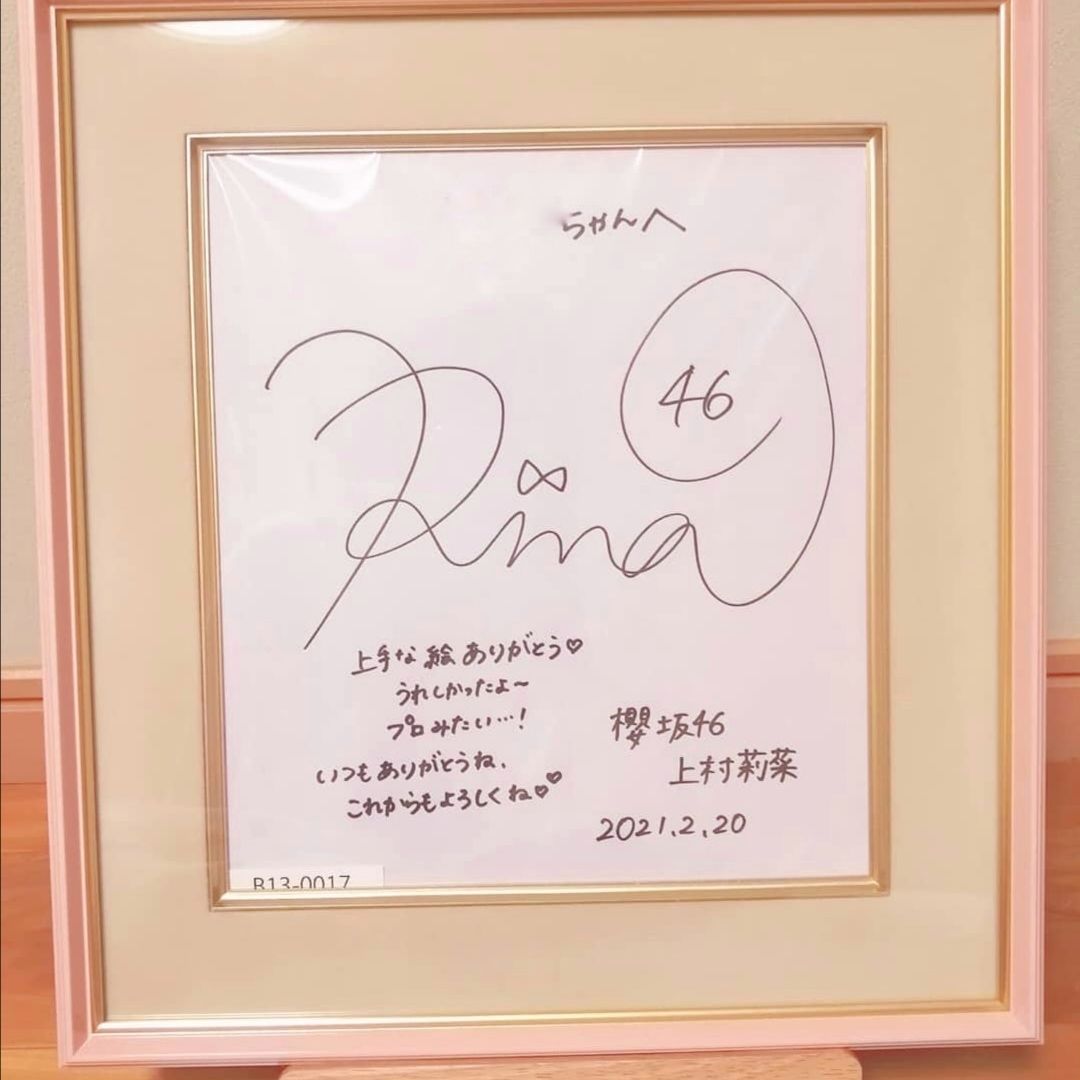 らやんへ
46
Rina
上手な絵ありがとう♡
うれしかったよ〜
プロみたい…!
いつもありがとうね、
これからもよろしくね♡♡
櫻坂46
上村莉菜
2021.2.20
B13-0017